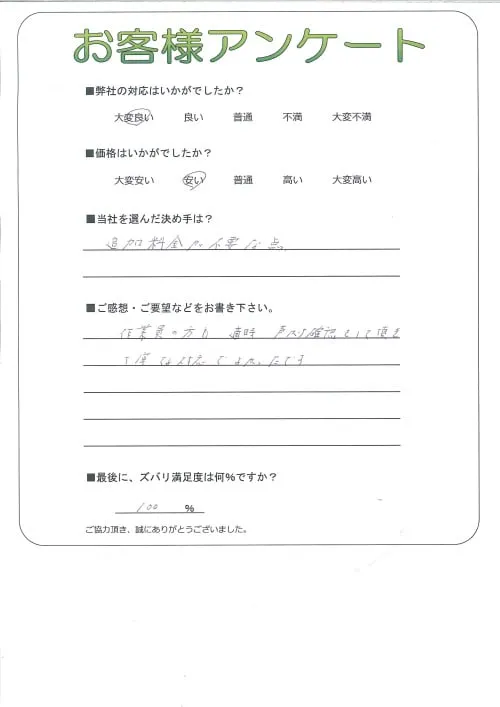 お客様アンケート
■弊社の対応はいかがでしたか？
大変良い 良い 普通 不満 大変不満
■価格はいかがでしたか？
大変安い 安い 普通 高い 大変高い
■当社を選んだ決め手は？
追加料金が不要な点
■ご感想・ご要望などをお書き下さい。
作業員の方が 適時 確認して頂き
丁寧な対応でよかったです
■最後に、ズバリ満足度は何％ですか？
100 %
ご協力頂き、誠にありがとうございました。